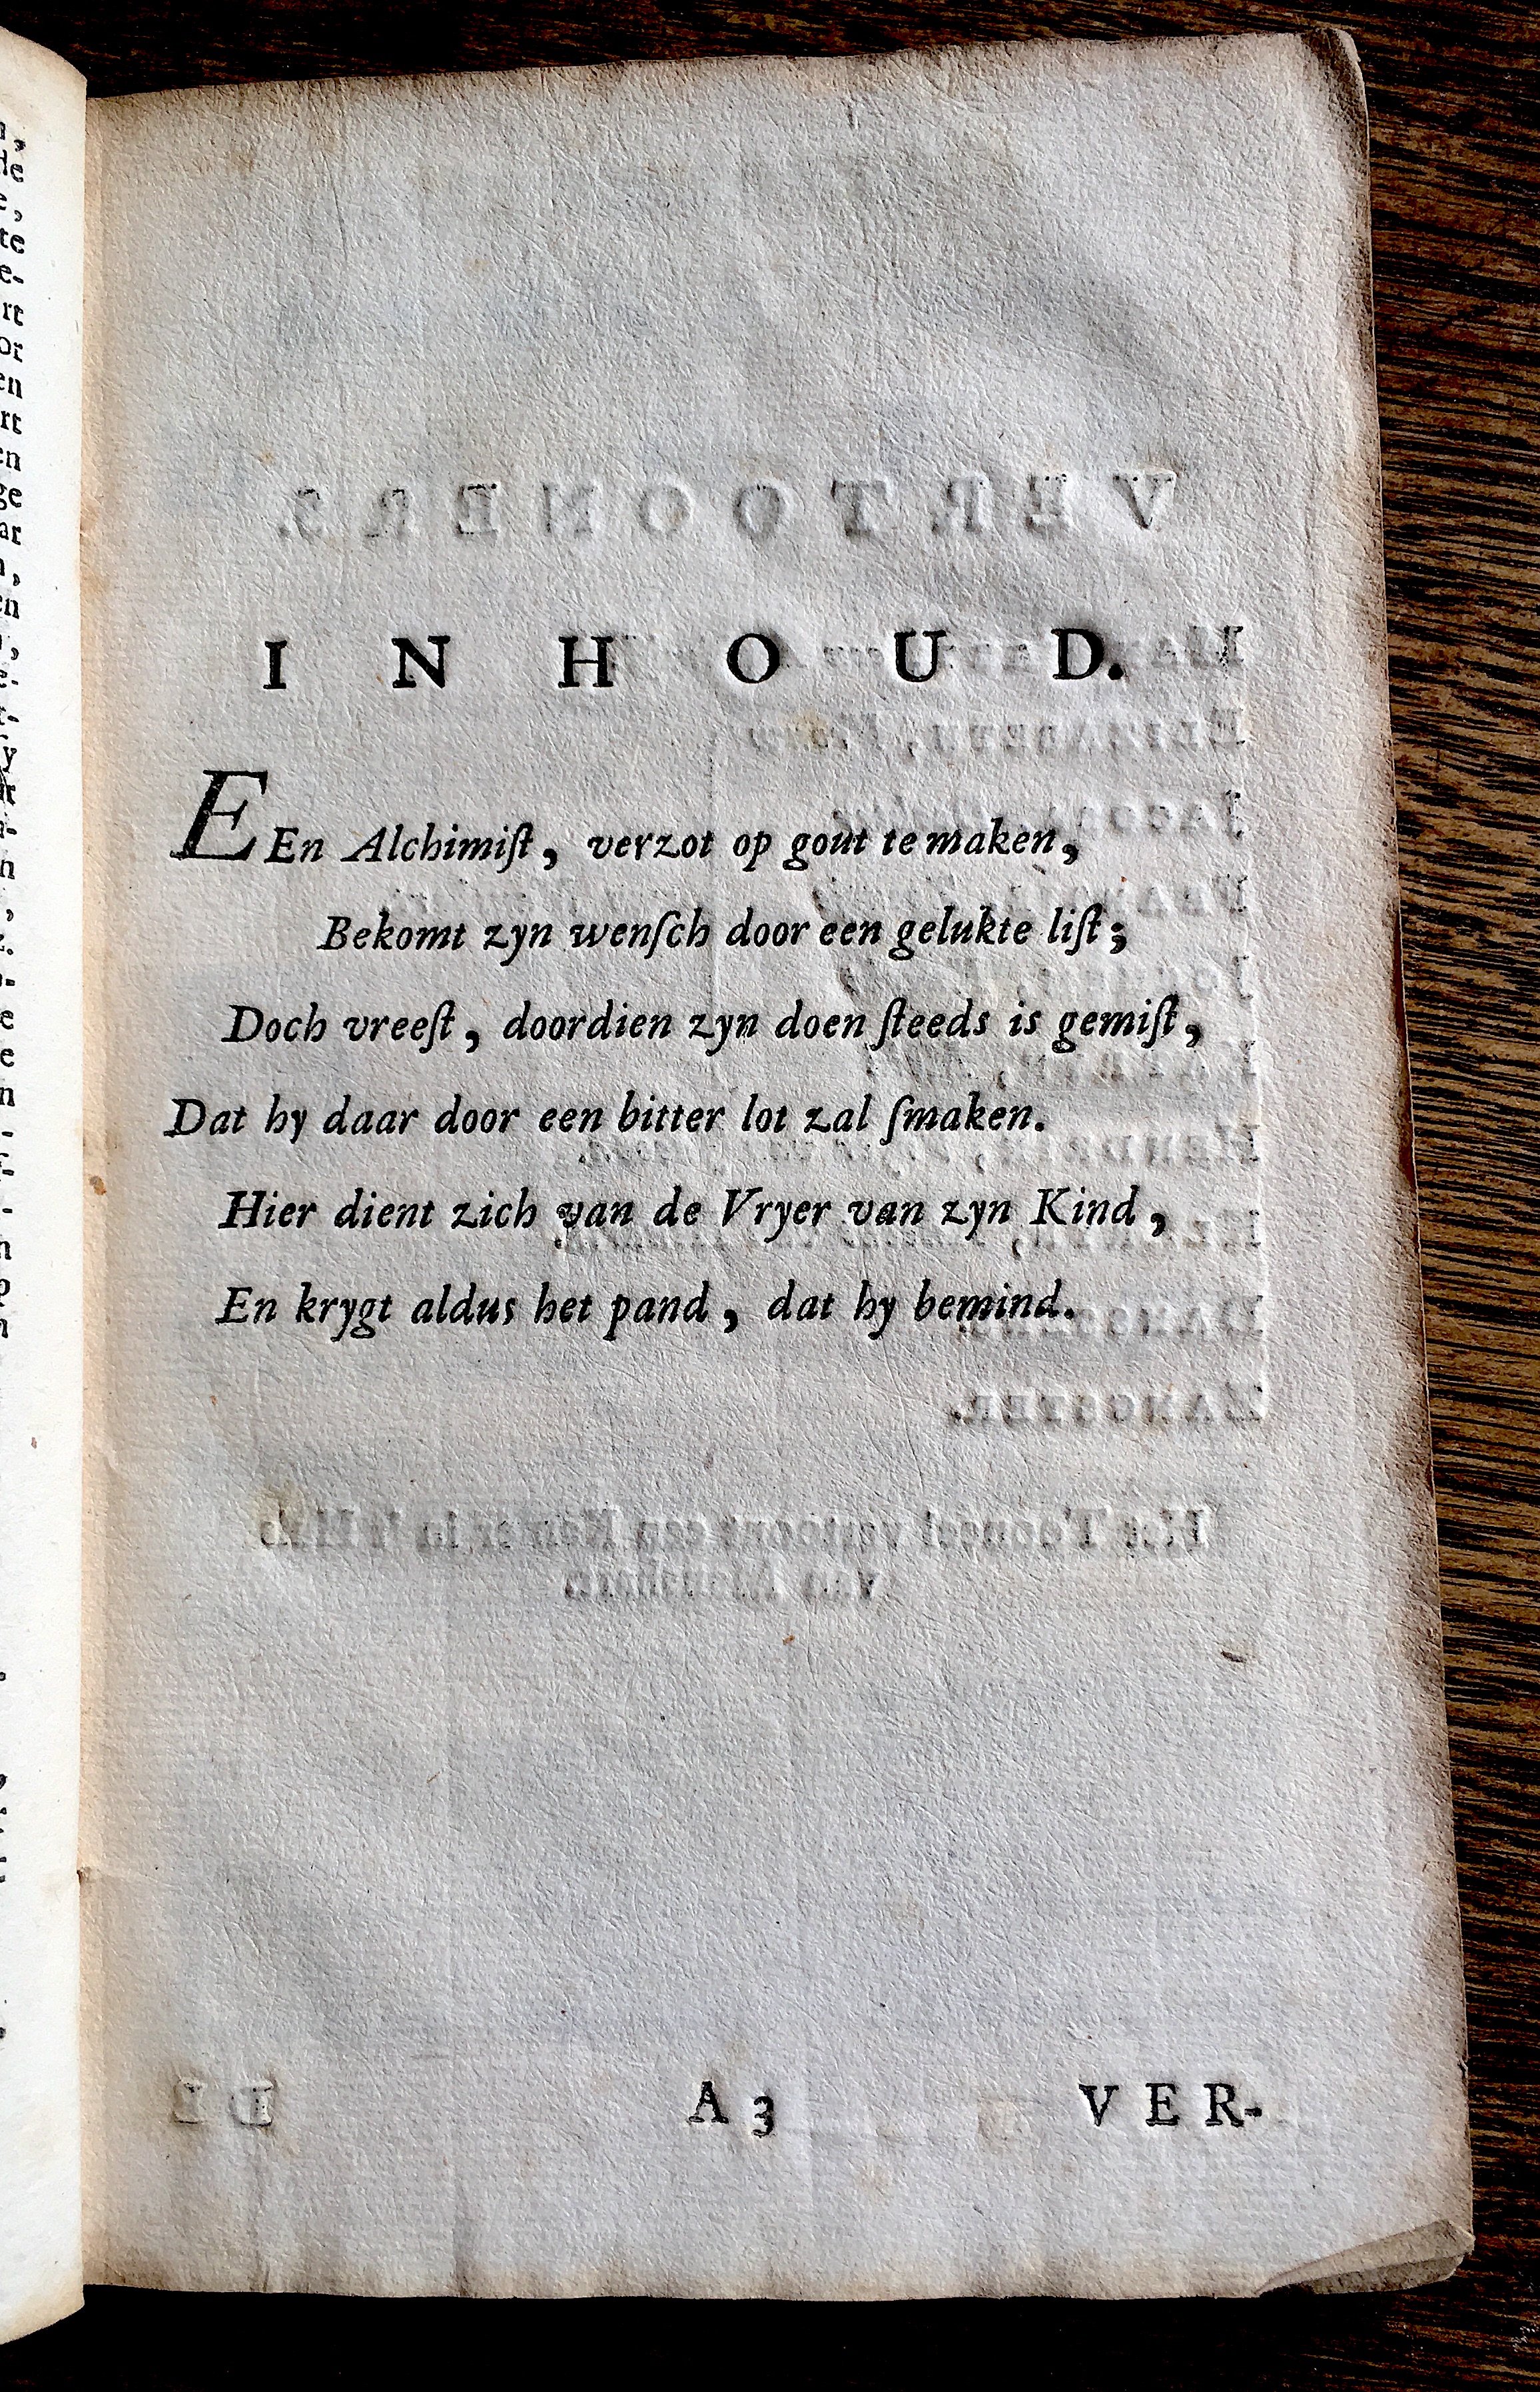 I N H O U D.
EEn Alchimiſt, verzot op gout te maken,
Bekomt zyn wenſch door een gelukte liſt;
Doch vreeſt, doordien zyn doen ſteeds is gemiſt,
Dat hy daar door een bitter lot zal ſmaken.
Hier dient zich van de Vryer van zyn Kind,
En krygt aldus het pand, dat hy bemind.
A 3 VER-